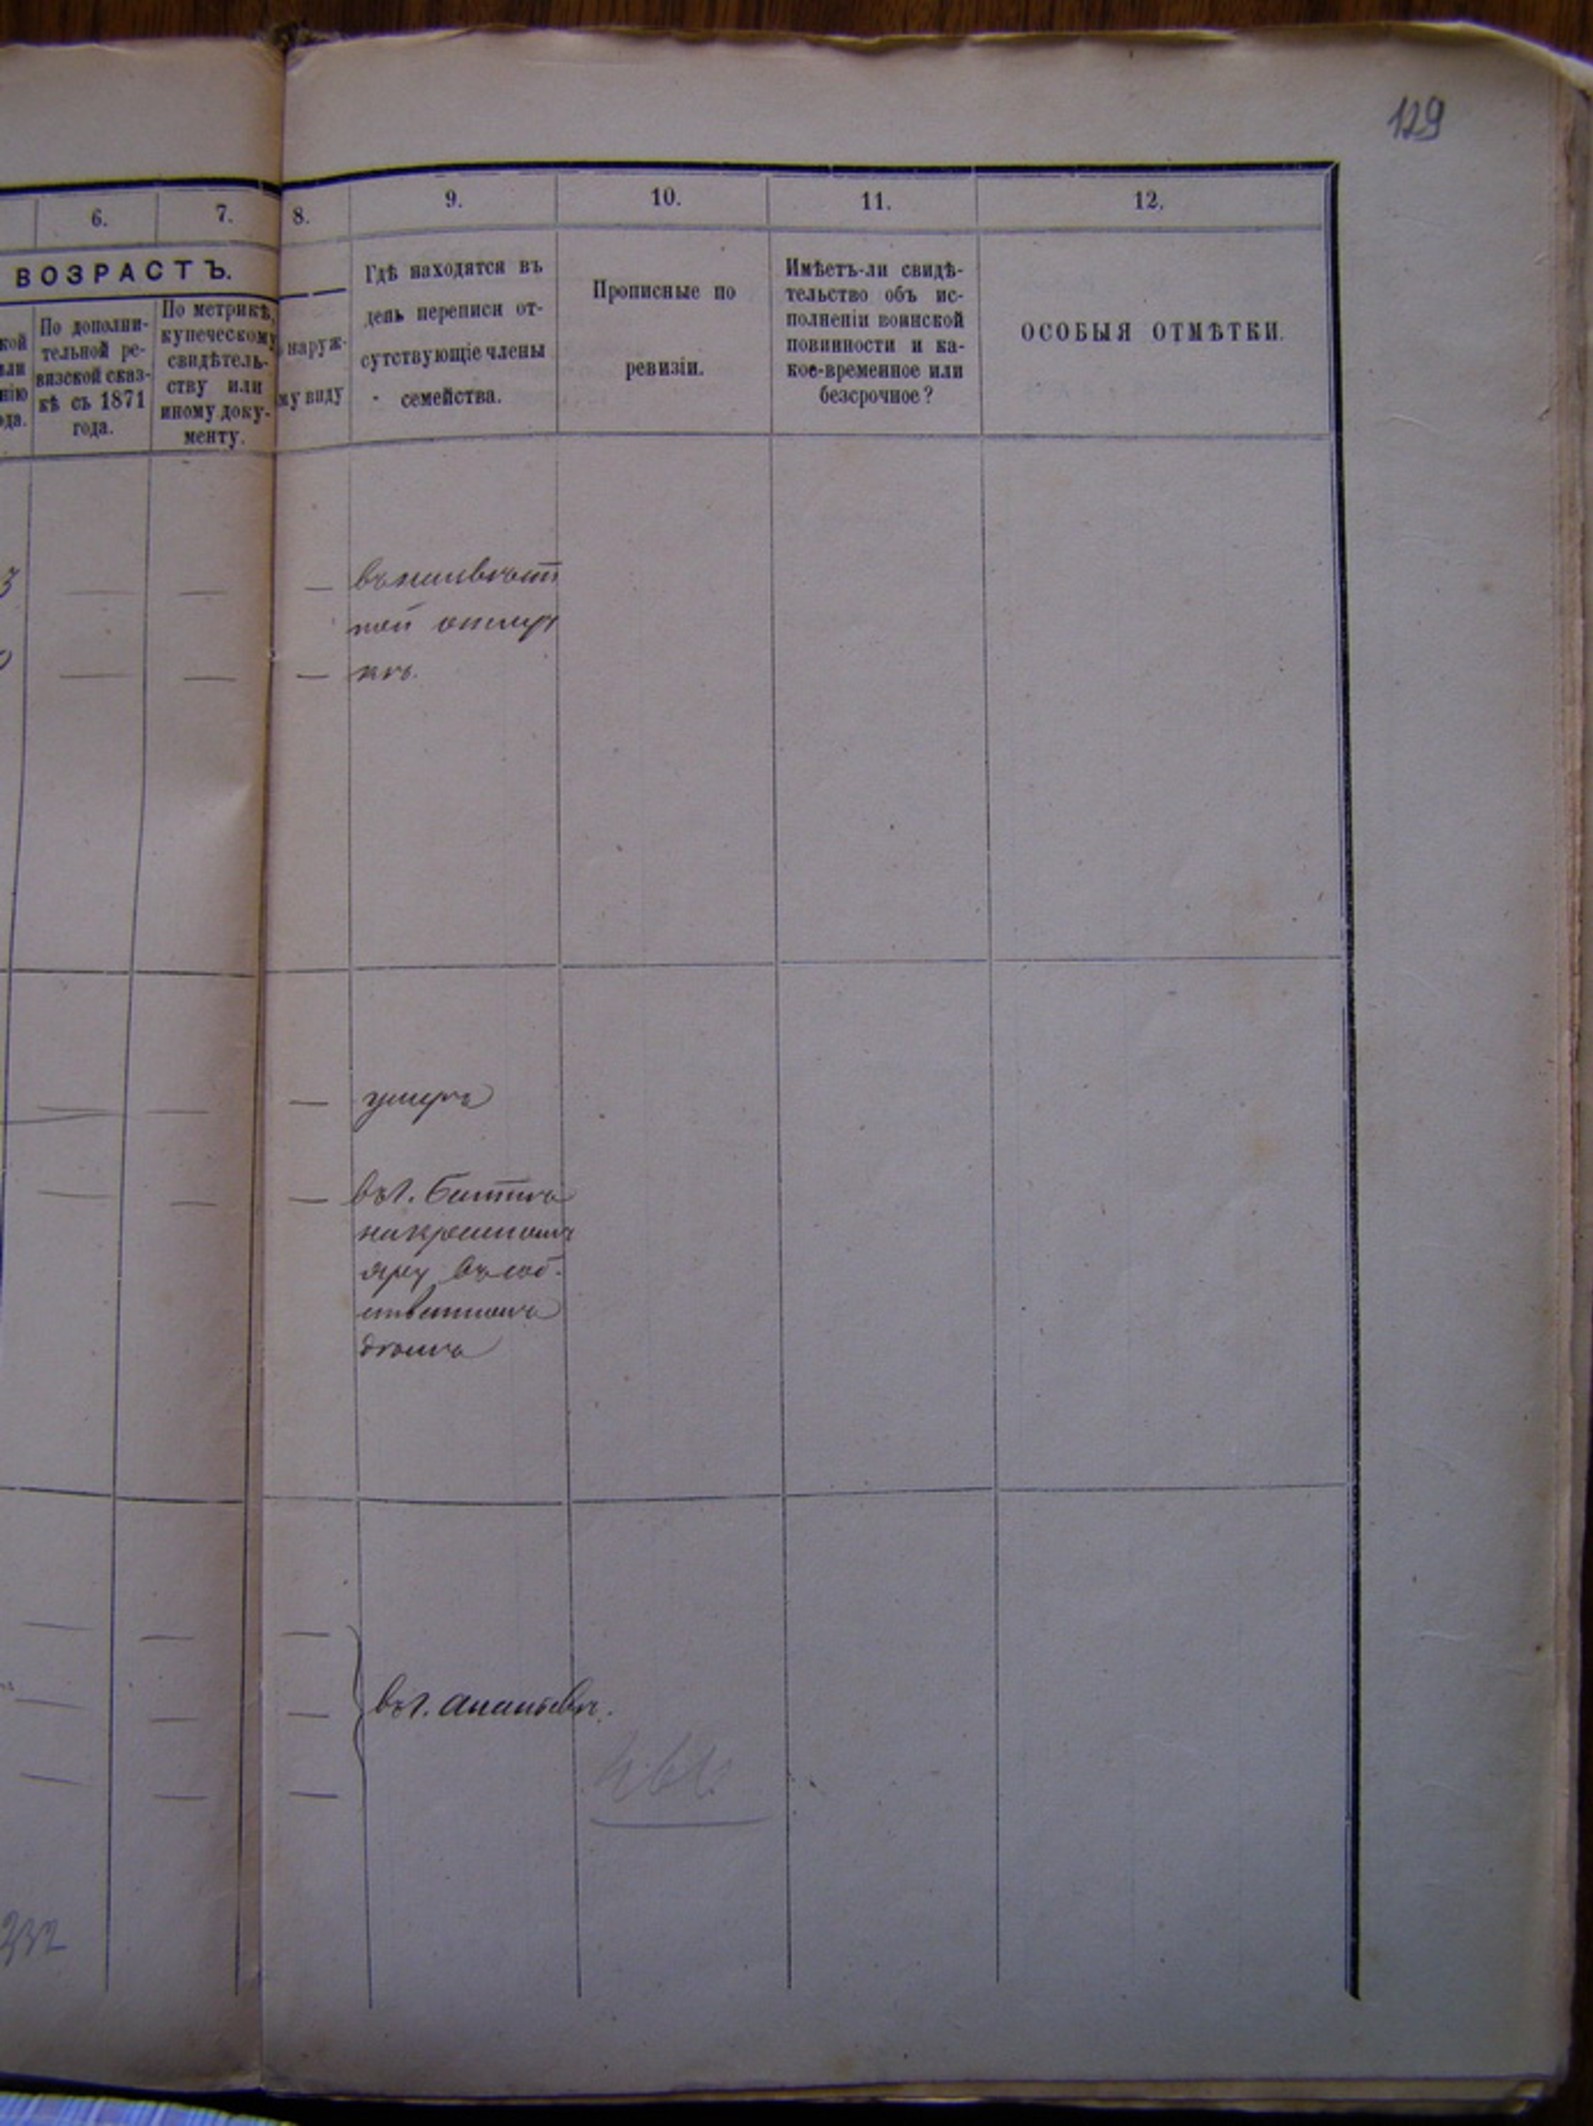 129
6.
7.
8.
9.
10.
11.
12.
ВОЗРАСТЪ.
кой
или
нію
ода.
По дополни-
тельной ре-
визской сказ-
кѣ съ 1871
года.
По метрикѣ,
купеческому
свидѣтель-
ству или
иному доку-
менту.
наруж-
му виду
Гдѣ находятся въ
день переписи от-
сутствующіе члены
семейства.
Прописные по
ревизіи.
Имѣетъ-ли свидѣ-
тельство объ ис-
полненіи воинской
повинности и ка-
кое-временное или
безсрочное?
ОСОБЫЯ ОТМѢТКИ.
3
— — — въ неизвѣст
ной отлуч
— — — кѣ.
— — — умеръ
— — — въ г.
на
яру въ соб-
ственномъ
домѣ
— — —
— — — въ г. Ананьевѣ.
— — —
232